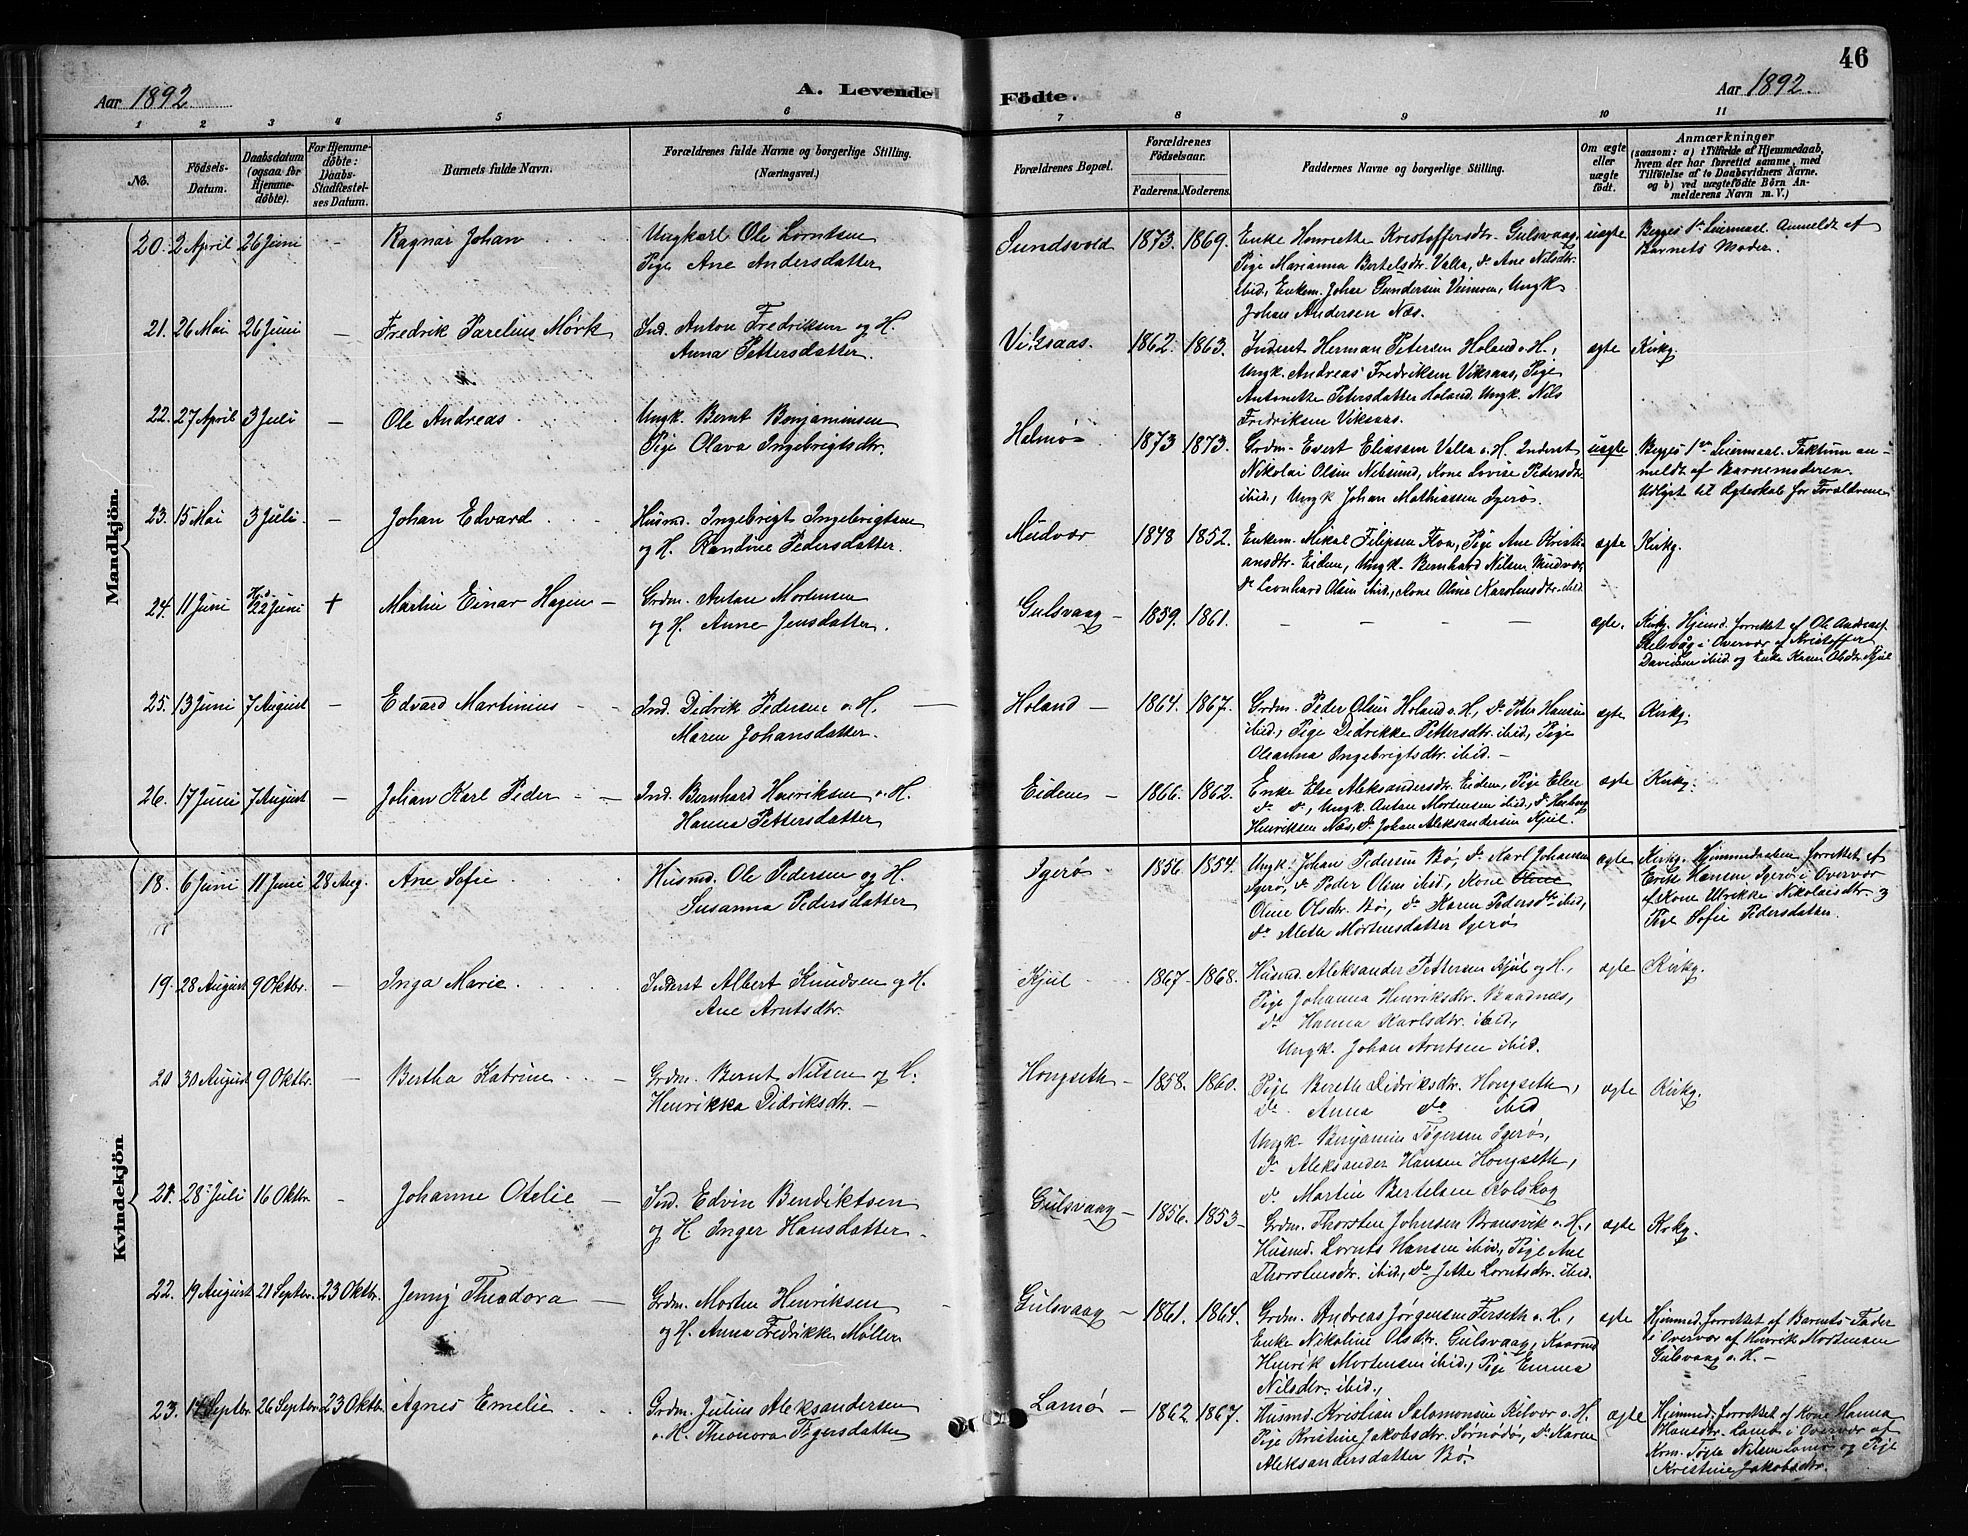 46
Aar 1892.
A. Levende Födte.
Aar 1892.
1 2 3 4 5 6 7 8 9 10 11
No.
Födsels-Datum.
Daabsdatum (ogsaa for Hjemme-døbte).
For Hjemme-døbte: Daabs-Stadfæstel-ses Datum.
Barnets fulde Navn.
Forældrenes fulde Navne og borgerlige Stilling. (Næringsvei.)
Forældrenes Bopæl.
Forældrenes Födselsaar.
Faderens. Moderens.
Faddernes Navne og borgerlige Stilling.
Om ægte eller uægte født.
Anmærkninger
(saasom: a) i Tilfælde af Hjemmedaab, hvem der har forrettet samme, med Tilföielse af to Daabsvidners Navne. og b) ved uægtefödte Börn An-melderens Navn m. V.)
Mandkjön.
20. 2 April 26 Juni - Ragnar Johan
Ungkarl Ole Lorntsen
Pige Ane Andersdatter
Sundsvold 1873. 1869.
Enke Henriette Kristoffersdtr. Gulsvaag,
Pige Marianna Bertelsdtr. Valla, do Ane Nilsdtr.
ibid, Enkem. Johan Gundersen Veimoen, Ungk.
Johan Andersen Næs.
uægte
Begges 1ste Leiermaal. Anmeldt af
Barnets Moder.
21. 26 Mai 26 Juni - Fredrik Parelius Mørk
Ind. Anton Fredriksen og H.
Anna Pettersdatter.
Viksaas. 1862. 1863.
Inderst Herman Petersen Holand o. H.,
Ungk. Andreas Fredriksen Viksaas, Pige
Antonette Petersdatter Holand. Ungk. Nils
Fredriksen Viksaas.
ægte Kirkg.
22. 27 April 3 Juli - Ole Andreas
Ungk. Bernt Benjaminsen
Pige Olava Ingebrigtsdtr.
Helmøs 1873 1873.
Grdm. Evert Eliassen Valla o. H. Inderst
Nikolai Olsen Nilsund, Kone Lovise Pedersdtr
ibid, Ungk Johan Mathiassen Igerø.
uægte
Begges 1ste Leiermaal. Faktum an-
meldt af Barnemoderen.
Udlyst til Ægteskab for Forældrene
23. 15 Mai 3 Juli - Johan Edvard
Husmd. Ingebrigt Ingebrigtsen
og H. Randine Pedersdatter.
Mudvær 1848 1852.
Enkem. Mikal Filipsen Floa, Pige Ane Kristi-
ansdtr. Eiden, Ungk. Bernhard Nilsen Mudvær
do Leonhard Olsen ibid, Kone Olina Karolusdtr. ibid
ægte Kirkg.
24. 11 Juni Hjd. 22 Juni + Martin Einar Hagen -
Grdm. Antan Mortensen
og H. Anne Jensdatter.
Gulsvaag - 1859. 1861.
- - - -
ægte.
Kirkg. Hjemd. forrettet af Ole Andreas
Stelsvåg i Overvær af Kristoffer
Davidsen ibid og Enke Karen Olsdtr. Kjul
25. 13 Juni 7 August - Edvard Martinius
Ind. Didrik Pedersen o. H.
Maren Johansdatter.
Holand - 1864. 1867.
Grdm. Peder Olsen Holand o. H, do Peter Hansen
ibid, Pige Didrikke Pettersdtr. ibid, Pige
Oleanna Ingebrigtsdtr. ibid. -
ægte Kirkg.
26. 17 Juni 7 August - Johan Karl Peder
Ind. Bernhard Henriksen o. H.
Hanna Pettersdatter
Eidem - 1866. 1862.
Enke Else Aleksandersdtr. Eidem, Pige Elen
do do, Ungk. Antan Mortensen ibid, do Herberg
Henriksen Næs, do Johan Aleksandersen Kjul.
ægte Kirkg.
Kvindekjön.
18. 6 Juni 11 Juni 28 Aug. Ane Sofie
Husmd. Ole Pedersen og H.
Susanna Pedersdatter
Igerø 1856 1854.
Ungk. Johan Pedersen Bø, do Karl Johansen
Igerø, do Peder Olsen ibid, Kone Oline
Oline Olsdtr. Bø, do Karen Pedersdtr ibid,
do Alette Mortensdatter Igerø
ægte
Kirkg. Hjemmedaaben forrettet af
Erik Hansen Igerø i Overvær
af Kone Ulrikke Nikolaisdtr. og
Pige Sofie Pedersdatter.
19. 28 August 9 Oktbr. - Inga Marie
Inderst Albert Knudsen og H.
Ane Arntsdtr.
Kjul 1867 1868.
Husmd. Aleksander Pettersen Kjul og H.,
Pige Johanna Henriksdtr. Baadnes,
do Hanna Karlsdtr. ibid,
Ungk. Johan Arntsen ibid.
ægte Kirkg.
20 30 August 9 Oktbr. - Bertha Katrine
Grdm. Bernt Nilsen og H.
Henrikka Didriksdtr. -
Hongseth - 1858. 1860.
Pige Bereth Didriksdtr. Hongseth,
do Anna do ibid
Ungk. Benjamin Tøgersen Igerø,
do Aleksander Hansen Hongseth,
do Martin Bertelsen Kolskog
ægte Kirkg.
21. 28 Juli 16 Oktbr. - Johanne Otelie -
Ind. Edvin Bendiktsen
og H. Inger Hansdatter.
Gulsvaag - 1856. 1853
Grdm. Thorsten Johnsen Bransvik o. H.,
Husmd. Lornts Hansen ibid, Pige Ane
Thorstensdtr. ibid, do Jette Lorntsdtr. ibid.
ægte Kirkg.
22. 19 August 21 Septbr. 23 Oktbr. Jenny Theodora -
Grdm. Morten Henriksen
og H. Anna Fredrikke Møller
Gulsvaag - 1861. 1864.
Grdm. Andreas Jørgensen Forseth o. H,
Enke Nikoline Olsdtr. Gulsvaag, Kaarmd
Henrik Mortensen ibid, Pige Emma
Nilsdtr. ibid.,
ægte
Hjemmed. forrettet af Barnets Fader
i Overvær af Henrik Mortensen
Gulsvaag o. H. -
23. 14 Septbr 26 Septbr 23 Oktbr. Agnes Emelie
Grdm. Julius Aleksandersen
o. H. Theonora Tøgersdatter
Lamø - 1862 1867.
Husmd. Kristian Salomonsen Kilvær o. H.
Pige Kristine Jakobsdtr. Sørnødø, do Karen
Aleksandersdatter Bø.
ægte
Hjemmed. forrettet af Kone Hanna
Hansdtr. Lamø i Overvær af
Kom. Tøgle Nilsen Lamø og Pige
Kristine Jakobsdtr.